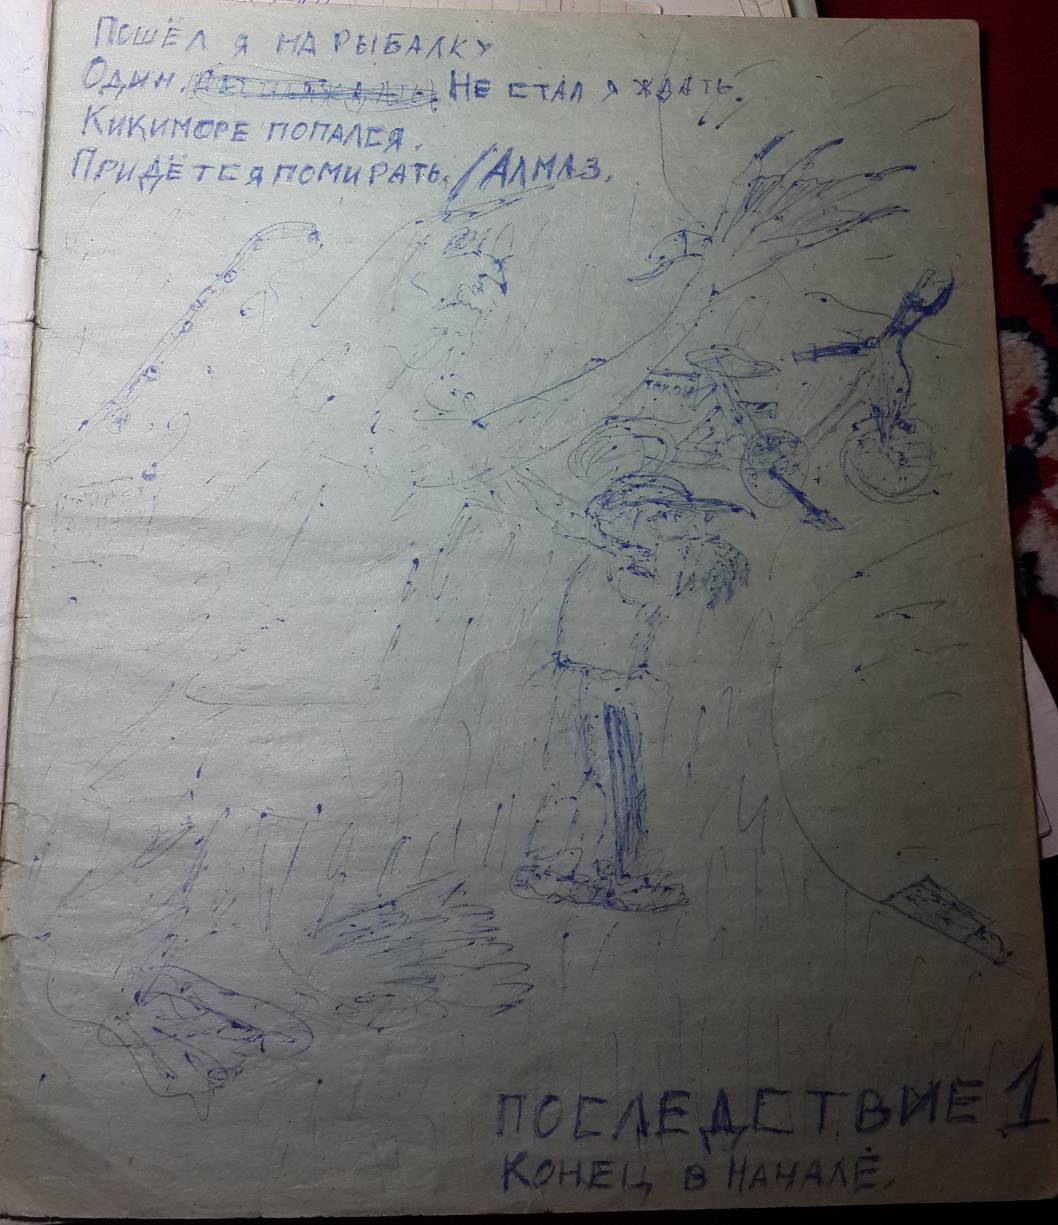 Пошёл я на рыбалку
Один. Не стал я ждать.
Кикиморе попался.
Придётся помирать. / Алмаз.
ПОСЛЕДСТВИЕ 1
Конец в начале.